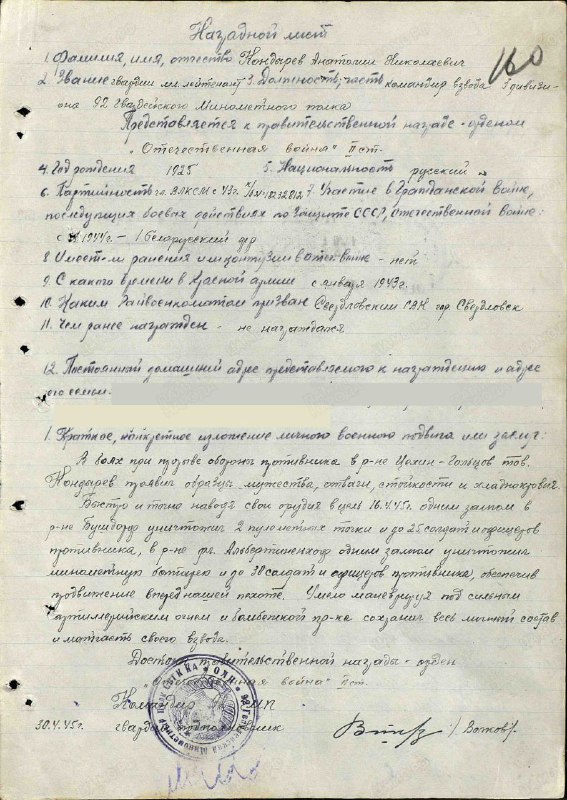 Наградной лист
1. Фамилия, имя, отчество Кондарев Анатолий Николаевич
2. Звание гвардии мл. лейтенант 3. Должность, часть командир взвода дивизи-
она 92 Гвардейского Минометного полка
Представляется к правительственной награде - орденом
„Отечественная война" II ст.
4. Год рождения 1925 5. Национальность русский
6. Партийность чл. ВЛКСМ с 43г. 7. Участие в Гражданской войне,
последующих боевых действиях по защите СССР, отечественной войне:
1944г. – 1 Белорусский фр
8. Имеет-ли ранения и контузии в отеч. войне - нет
9. С какого времени в Красной армии с января 1943г.
10. Каким Райвоенкоматом призван Свердловским гор. Свердловск
11. Чем ранее награжден - не награждался
12. Постоянный домашний адрес представляемого к награждению и адрес
его семьи.
1. Краткое, конкретное изложение личного военного подвига или заслуг:
В боях при прорыве обороны противника в р-не Цехин-Гольцов тов.
Кондарев проявил образцы мужества, отваги, стойкости и хладнокровия.
Быстро и точно наводя свои орудия в цель 16.4.45г. одним залпом в
р-не уничтожил 2 пулеметных точки и до 25 солдат и офицеров
противника, в р-не одним залпом уничтожил
минометную батарею и до 38 солдат и офицеров противника, обеспечив
продвижение вперед нашей пехоте. Умело маневрируя под сильным
артиллерийским огнем и бомбежкой пр-ка сохранил весь личный состав
и матчасть своего взвода.
Достоин правительственной награды - орден
„Отечественная война" II ст.
Командир МП
30.4.45г. гвардии подполковник